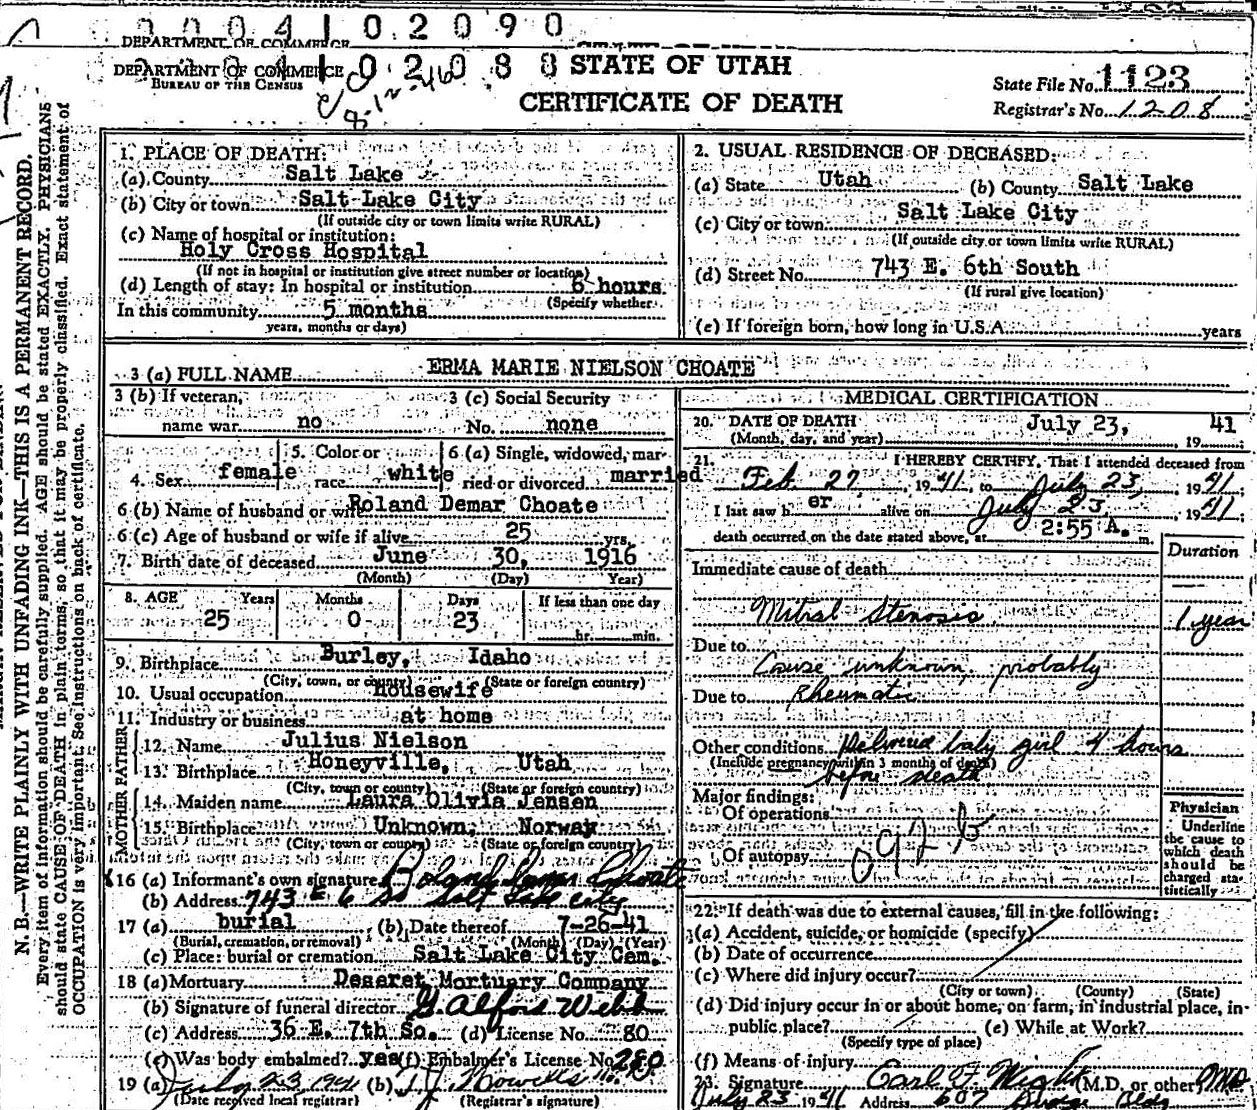 0 0 0 4 1 0 2 0 9 0
DEPARTMENT OF COMMERCE
DEPARTMENT OF COMMERCE
1 0 2 0 8 8
BUREAU OF THE CENSUS
8-12-46
STATE OF UTAH
CERTIFICATE OF DEATH
State File No. 1123
Registrar's No. 1208
N. B.—WRITE PLAINLY WITH UNFADING INK—THIS IS A PERMANENT RECORD.
Every item of information should be carefully supplied. AGE should be stated EXACTLY. PHYSICIANS
should state CAUSE OF DEATH in plain terms, so that it may be properly classified. Exact statement of
OCCUPATION is very important. See instructions on back of certificate.
1. PLACE OF DEATH:
(a) County Salt Lake
(b) City or town Salt Lake City
(If outside city or town limits write RURAL)
(c) Name of hospital or institution:
Holy Cross Hospital
(If not in hospital or institution give street number or location)
(d) Length of stay: In hospital or institution 6 hours
(Specify whether
In this community 5 months
years, months or days)
2. USUAL RESIDENCE OF DECEASED:
(a) State Utah (b) County Salt Lake
Salt Lake City
(c) City or town
(If outside city or town limits write RURAL)
(d) Street No. 743 E. 6th South
(If rural give location)
(e) If foreign born, how long in U.S.A. years
3 (a) FULL NAME ERMA MARIE NIELSON CHOATE
3 (b) If veteran, 3 (c) Social Security
name war no No. none
5. Color or 6 (a) Single, widowed, mar-
4. Sex female race white ried or divorced married
6 (b) Name of husband or wife Roland Demar Choate
6 (c) Age of husband or wife if alive 25 yrs.
7. Birth date of deceased June 30, 1916
(Month) (Day) Year)
8. AGE Years Months Days If less than one day
25 0 23 hr. min.
9. Birthplace Burley, Idaho
(City, town, or county) (State or foreign country)
10. Usual occupation housewife
11. Industry or business at home
FATHER
12. Name Julius Nielson
13. Birthplace Honeyville, Utah
(City, town or county) (State or foreign country)
MOTHER
14. Maiden name Laura Olivia Jensen
15. Birthplace Unknown, Norway
(City, town or county) (State or foreign country)
16 (a) Informant's own signature Roland Demar Choate
(b) Address 743 E 6 So Salt Lake City
17 (a) burial (b) Date thereof 7-26-41
(Burial, cremation, or removal) (Month) (Day) (Year)
(c) Place: burial or cremation Salt Lake City Cem.
18 (a) Mortuary Deseret Mortuary Company
(b) Signature of funeral director G. Alford Webb
(c) Address 36 E. 7th So. (d) License No. 80
(e) Was body embalmed? yes (f) Embalmer's License No. 280
19 (a) July 23, 1941 (b) T. J. Howells
(Date received local registrar) (Registrar's signature)
MEDICAL CERTIFICATION
20. DATE OF DEATH July 23, 41
(Month, day, and year) 19
21. I HEREBY CERTIFY, That I attended deceased from
Feb. 27, 1941, to July 23, 1941
I last saw h er alive on July 23, 1941
death occurred on the date stated above, at 2:55 A. m.
Duration
Immediate cause of death
Mitral Stenosis 1 year
Due to
Cause unknown, probably
Due to Rheumatic
Other conditions Delivered baby girl 4 hours
(Include pregnancy within 3 months of death)
before death
Major findings:
Of operations
Of autopsy
092 b
Physician
Underline
the cause to
which death
should be
charged sta-
tistically
22. If death was due to external causes, fill in the following:
(a) Accident, suicide, or homicide (specify)
(b) Date of occurrence
(c) Where did injury occur?
(City or town) (County) (State)
(d) Did injury occur in or about home, on farm, in industrial place, in
public place? (e) While at Work?
(Specify type of place)
(f) Means of injury
23. Signature Earl F. Wight (M.D. or other) M.D.
July 23 1941 Address 607 Bldg